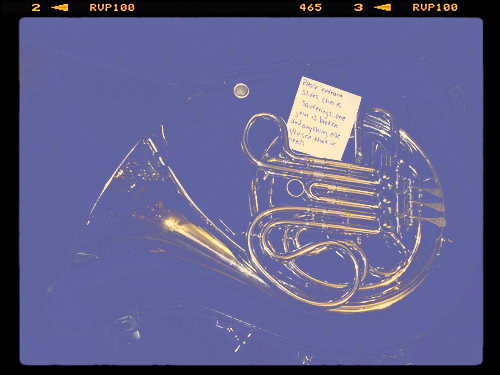 2 RVP100 465 3 RVP100
Please extract
slides. Check
soderings, one
yoin is broken
and anything else
you see that it
needs